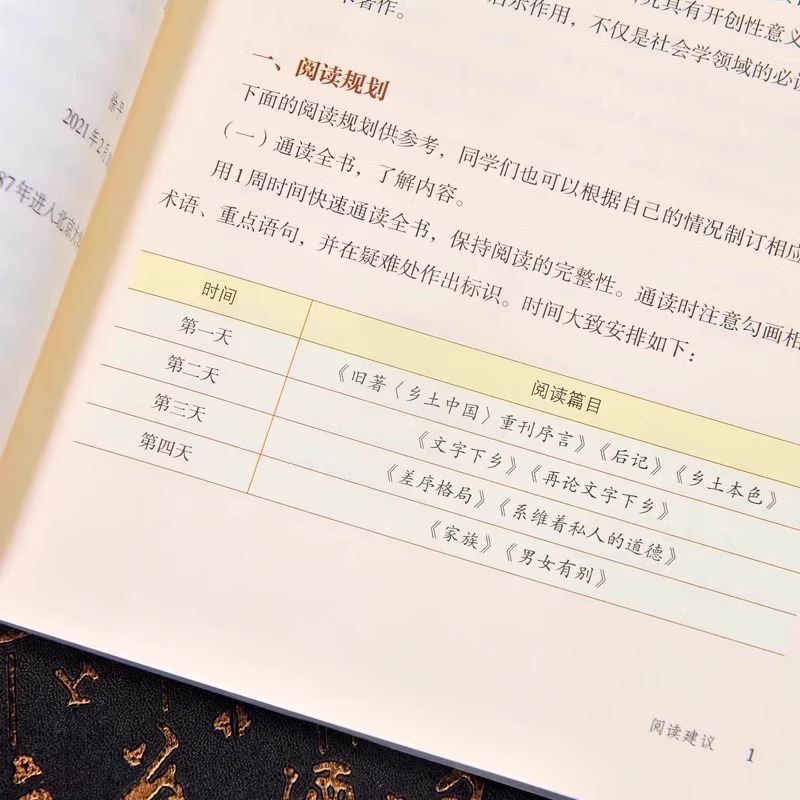 徐平
2021年2月
87年进入北京大
启示作用，不仅是社会学领域的必读
具有开创性意义
著作。
一、阅读规划
下面的阅读规划供参考，同学们也可以根据自己的情况制订相应
（一）通读全书，了解内容。
用1周时间快速通读全书，保持阅读的完整性。通读时注意勾画相
术语、重点语句，并在疑难处作出标识。时间大致安排如下：
时间 阅读篇目
第一天 《旧著〈乡土中国〉重刊序言》《后记》《乡土本色》
第二天 《文字下乡》《再论文字下乡》
第三天 《差序格局》《系维着私人的道德》
第四天 《家族》《男女有别》
阅读建议 1